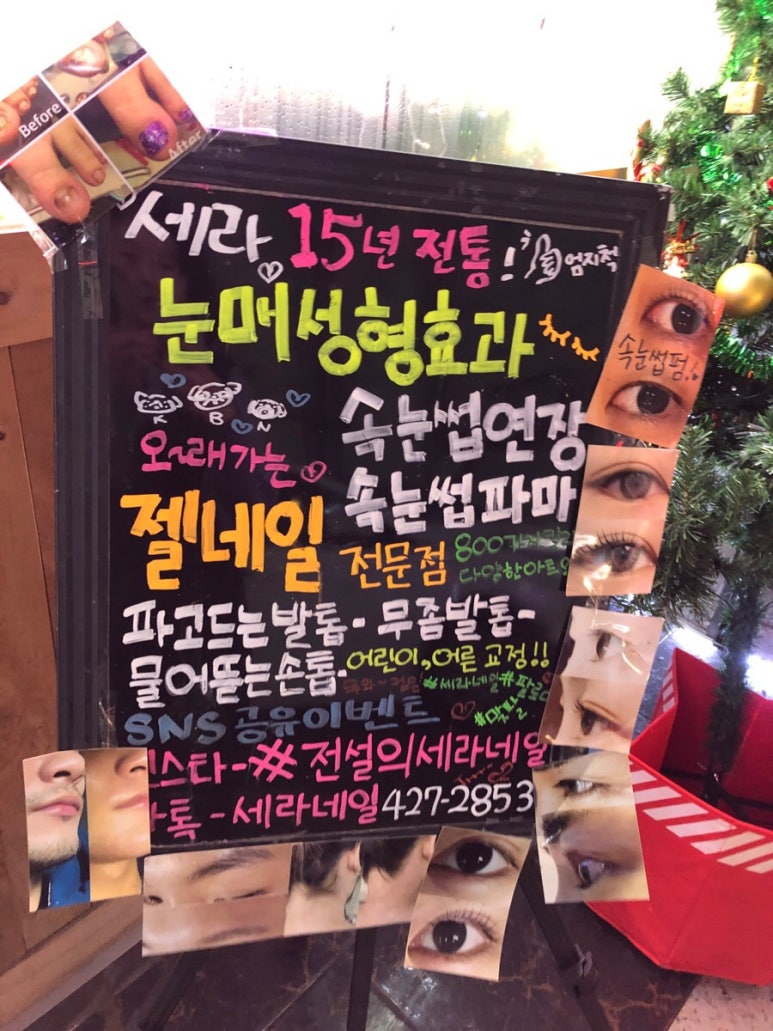 Before
After
세라 15년 전통! 엄지척
눈매성형효과
속눈썹펌
K B N
속눈썹연장
오~래가는
속눈썹파마
젤네일 전문점
800가지
다양한아트
파고드는발톱 - 무좀발톱 -
물어뜯는손톱 - 어린이, 어른 교정!!
#세라네일#팔로
SNS 공유이벤트
스타 - #전설의세라네일
톡 - 세라네일 427-2853